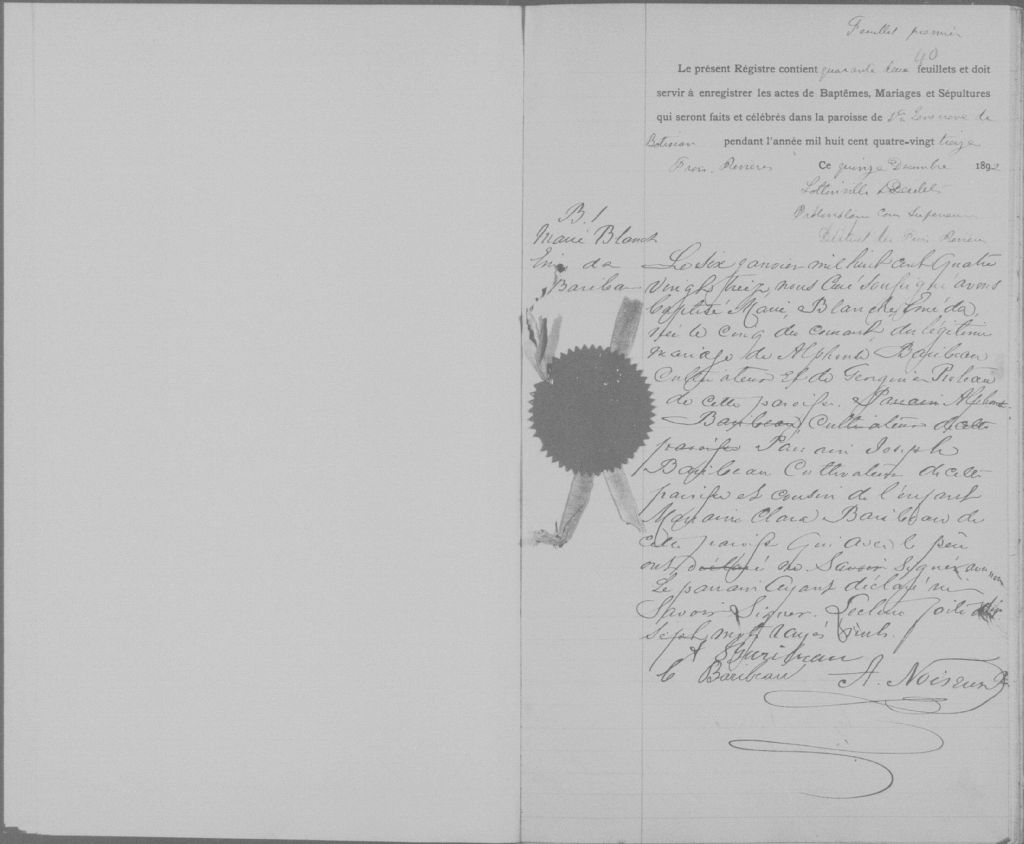 Feuillet premier
40
Le présent Régistre contient quarante deux feuillets et doit
servir à enregistrer les actes de Baptêmes, Mariages et Sépultures
qui seront faits et célébrés dans la paroisse de Ste Genevieve de
Batiscan pendant l'année mil huit cent quatre-vingt treize
Trois Rivieres Ce quinze Decembre 1892
Lottinville & Desilets
Protonotaire Cour Superieure
District des Trois Rivieres
B. 1
Marie Blanch
Emé da
Baribeau
Le six janvier mil huit cent quatre
vingts treize, nous Curé soussigné avons
baptisé Marie, Blanche, Eméda,
née le cinq du courant, du légitime
mariage de Alphonse Baribeau
Cultivateur et de Georgina
de cette paroisse. Parrain Alphonse
Baribeau, Cultivateur de cette
paroisse Parrain Joseph
Baribeau Cultivateur de cette
paroisse et cousin de l'enfant
Marraine Clara Baribeau de
cette paroisse qui avec le père
ont déclaré ne Savoir Signer
Le parrain ayant déclaré ne
Savoir Signer. Lecture faite
Sept mots rayés nuls.
Baribeau
C Baribeau A. Noiseux Ptre